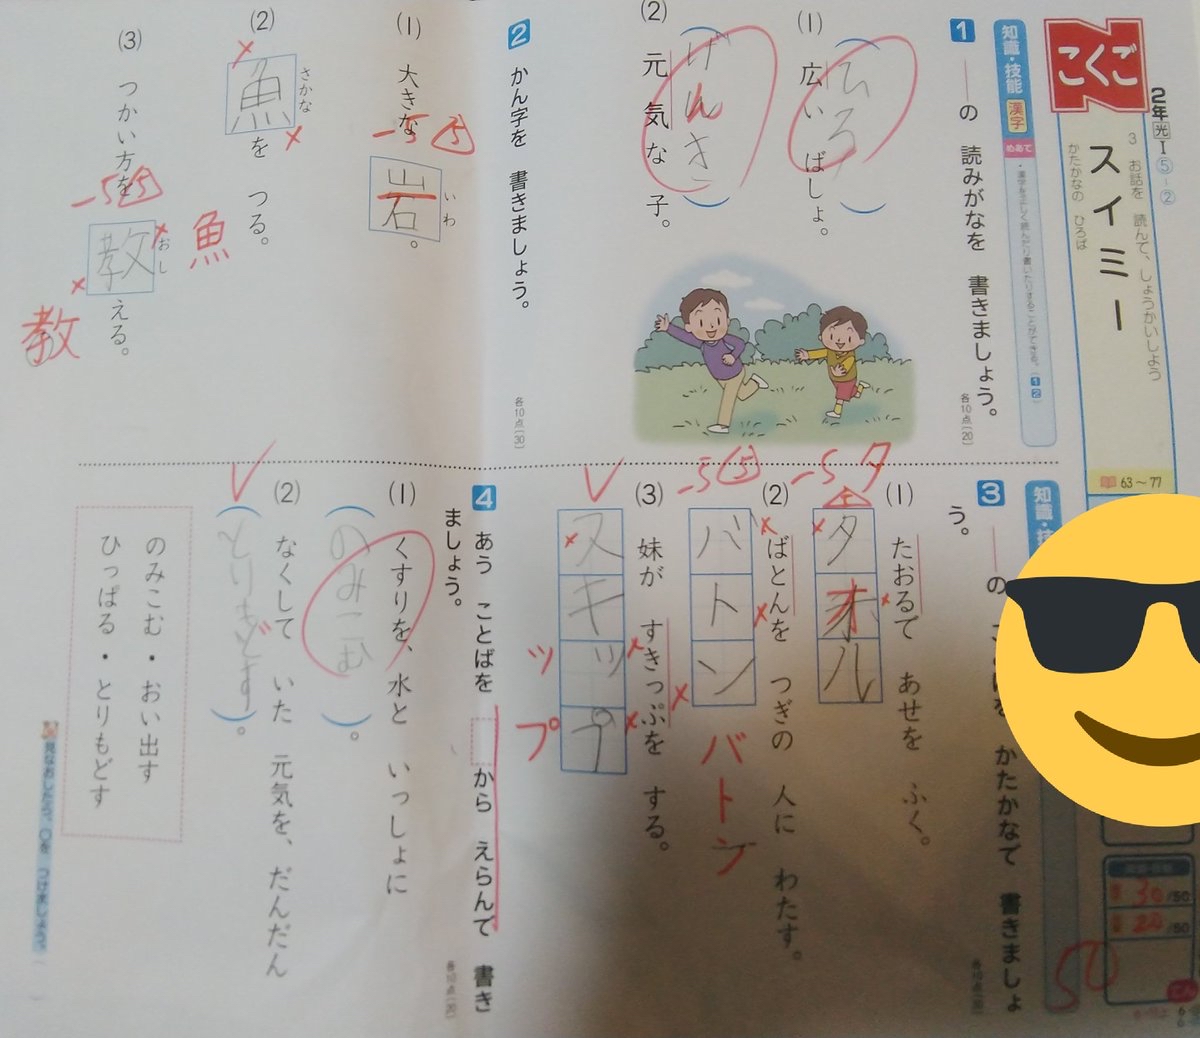 こくご
2年 光 Ⅰ ⑤-②
3 お話を 読んで、しょうかいしよう
スイミー
かたかなの ひろば
63〜77
知識・技能 漢字
めあて
・漢字を正しく読んだり書いたりすることができる。(1 2)
1 ――の 読みがなを 書きましょう。
各10点(20)
(1) 広い ばしょ。
(ひろ)
(2) 元気な子。
(げんき)
2 かん字を 書きましょう。
各10点(30)
(1) 大きな 岩。
いわ
-5 5
(2) 魚を つる。
さかな
魚
(3) つかい方を 教える。
おし
-5 5
教
知識・技
3 ――の
かたかなで 書きましょ
う。
各10点(30)
(1) たおるで あせを ふく。
タオル
-5 タ
(2) ばとんを つぎの 人に わたす。
バトン
-5 5
バトン
(3) 妹が すきっぷを する。
スキップ
ップ
4 あう ことばを から えらんで 書き
ましょう。
各10点(20)
(1) くすりを、水と いっしょに
(のみこむ)。
(2) なくして いた 元気を、だんだん
(とりもどす)。
のみこむ・おい出す
ひっぱる・とりもどす
見なおしたら、○を つけましょう。
30/50
20/50
50